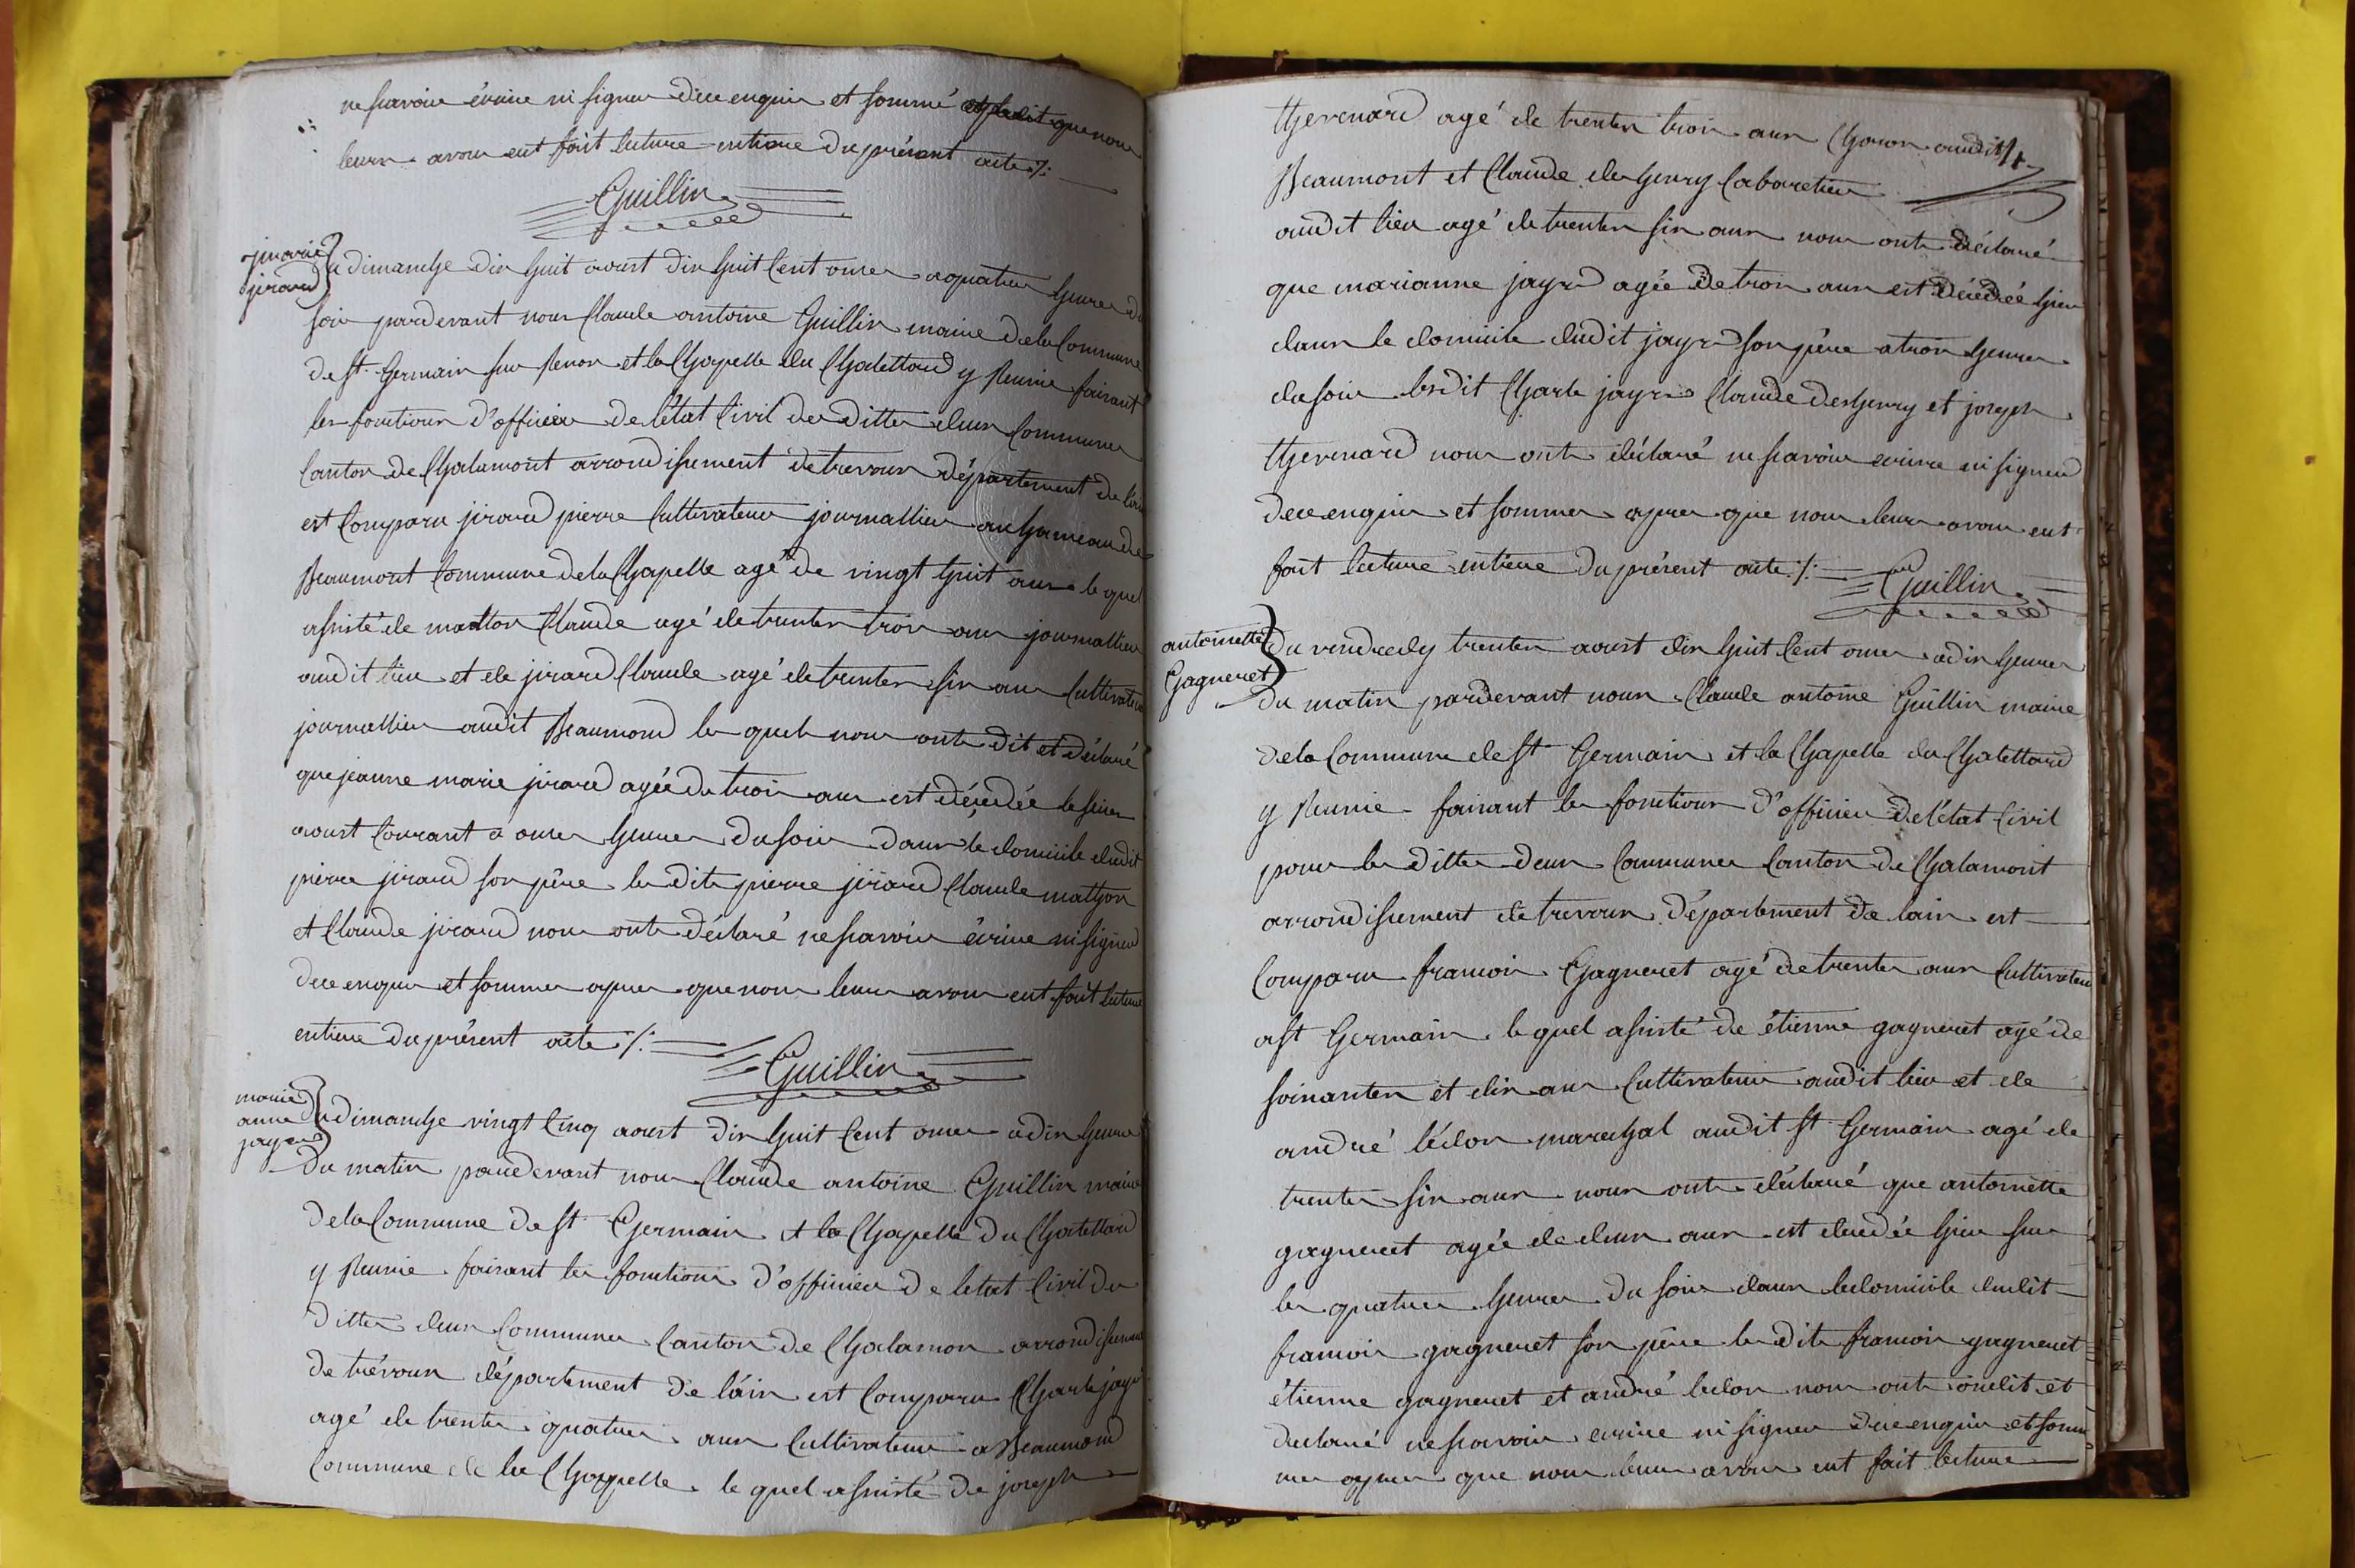 ne scavoir écrire ni signer dece enquis et sommé et ledit que nous
leurs avons eut fait lecture entiere du présent acte ./.
Guillin
j marie
jirard
du dimanche dix huit aoust dix huit cent onze a quatre heures du
soir pardevant nous Claude antoine Guillin maire de la Commune
de st Germain sur Renon et la Chapelle du Chatellard y Reunie faisant
les fonctions d'officier de l'état Civil des dittes deux Communes
Canton de Chalamont arrondissement de trevoux département de l'ain
est Comparu jirard pierre Cultivateur journallier au hameau de
Beaumont Commune de la Chapelle agé de vingt huit ans le quel
assisté de matton Claude agé de trentes trois ans journallier
audit lieu et de jirard Claude agé de trentes six ans Cultivateur
journallier audit Beaumond les quels nous onts dit et déclaré
que jeanne marie jirard agée de trois ans est décédée le seize
aoust Courant a onze heures du soir dans le domicile dudit
pierre jirard son père les dits pierre jirard Claude mathon
et Claude jirard nous onts déclaré ne scavoir écrire ni signer
dece enquis et sommes apres que nous leurs avons eut fait lecture
entiere du présent acte ./.
Guillin
marie
anne
jayr
du dimanche vingt Cinq aoust dix huit Cent onze a dix heures
du matin pardevant nous Claude antoine Guillin maire
de la Commune de st Germain et la Chapelle du Chatellard
y Reunie faisant les fonctions d'officier de letat Civil des
dittes deux Communes Canton de Chalamon arrondissement
de trévoux département de láin est Comparu Charle jayr
agé de trentes quatres ans Cultivateur a Beaumond
Commune de la Chappelle le quel assisté de joseph
thevenard agé de trentes trois ans Charon audit
Beaumont et Claude deshenry Cabaretier
audit lieu agé de trentes six ans nous onts déclaré
que marianne jayr agée de trois ans est décédée hier
dans le domicile dudit jayr son père a trois heures
du soir lesdit Charle jayr Claude deshenry et joseph
thevenard nous onts déclaré ne scavoir ecrire ni signer
dece enquis et sommes apres que nous leurs avons eut
fait lecture entiere du présent acte ./.
Guillin
antoinette
Gagneret
du vendredy trentes aoust dix huit Cent onze a dix heures
du matin pardevant nous Claude antoine Guillin maire
de la Commune de st Germain et la Chapelle du Chatellard
y Reunie faisant les fonctions d'officier de l'état Civil
pour les dittes deux Communes Canton de Chalamont
arrondissement de trevoux département de lain est
Comparu francois Gagneret agé de trentes ans Cultivateur
a st Germain le quel assisté de étienne gagneret agé de
soixantes et dix ans Cultivateur audit lieu et de
andré léclon marechal audit st Germain agé de
trentes six ans nous onts déclaré que antoinette
gagneret agée de deux ans est decedée hier sur
les quatres heures du soir dans le domicile dudit
francois gagneret son père les dits francois gagneret
étienne gagneret et andré leclon nous onts dit et
declaré ne scavoir ecrire ni signer dece enquis et som
mes apres que nous leurs avons eut fait lecture